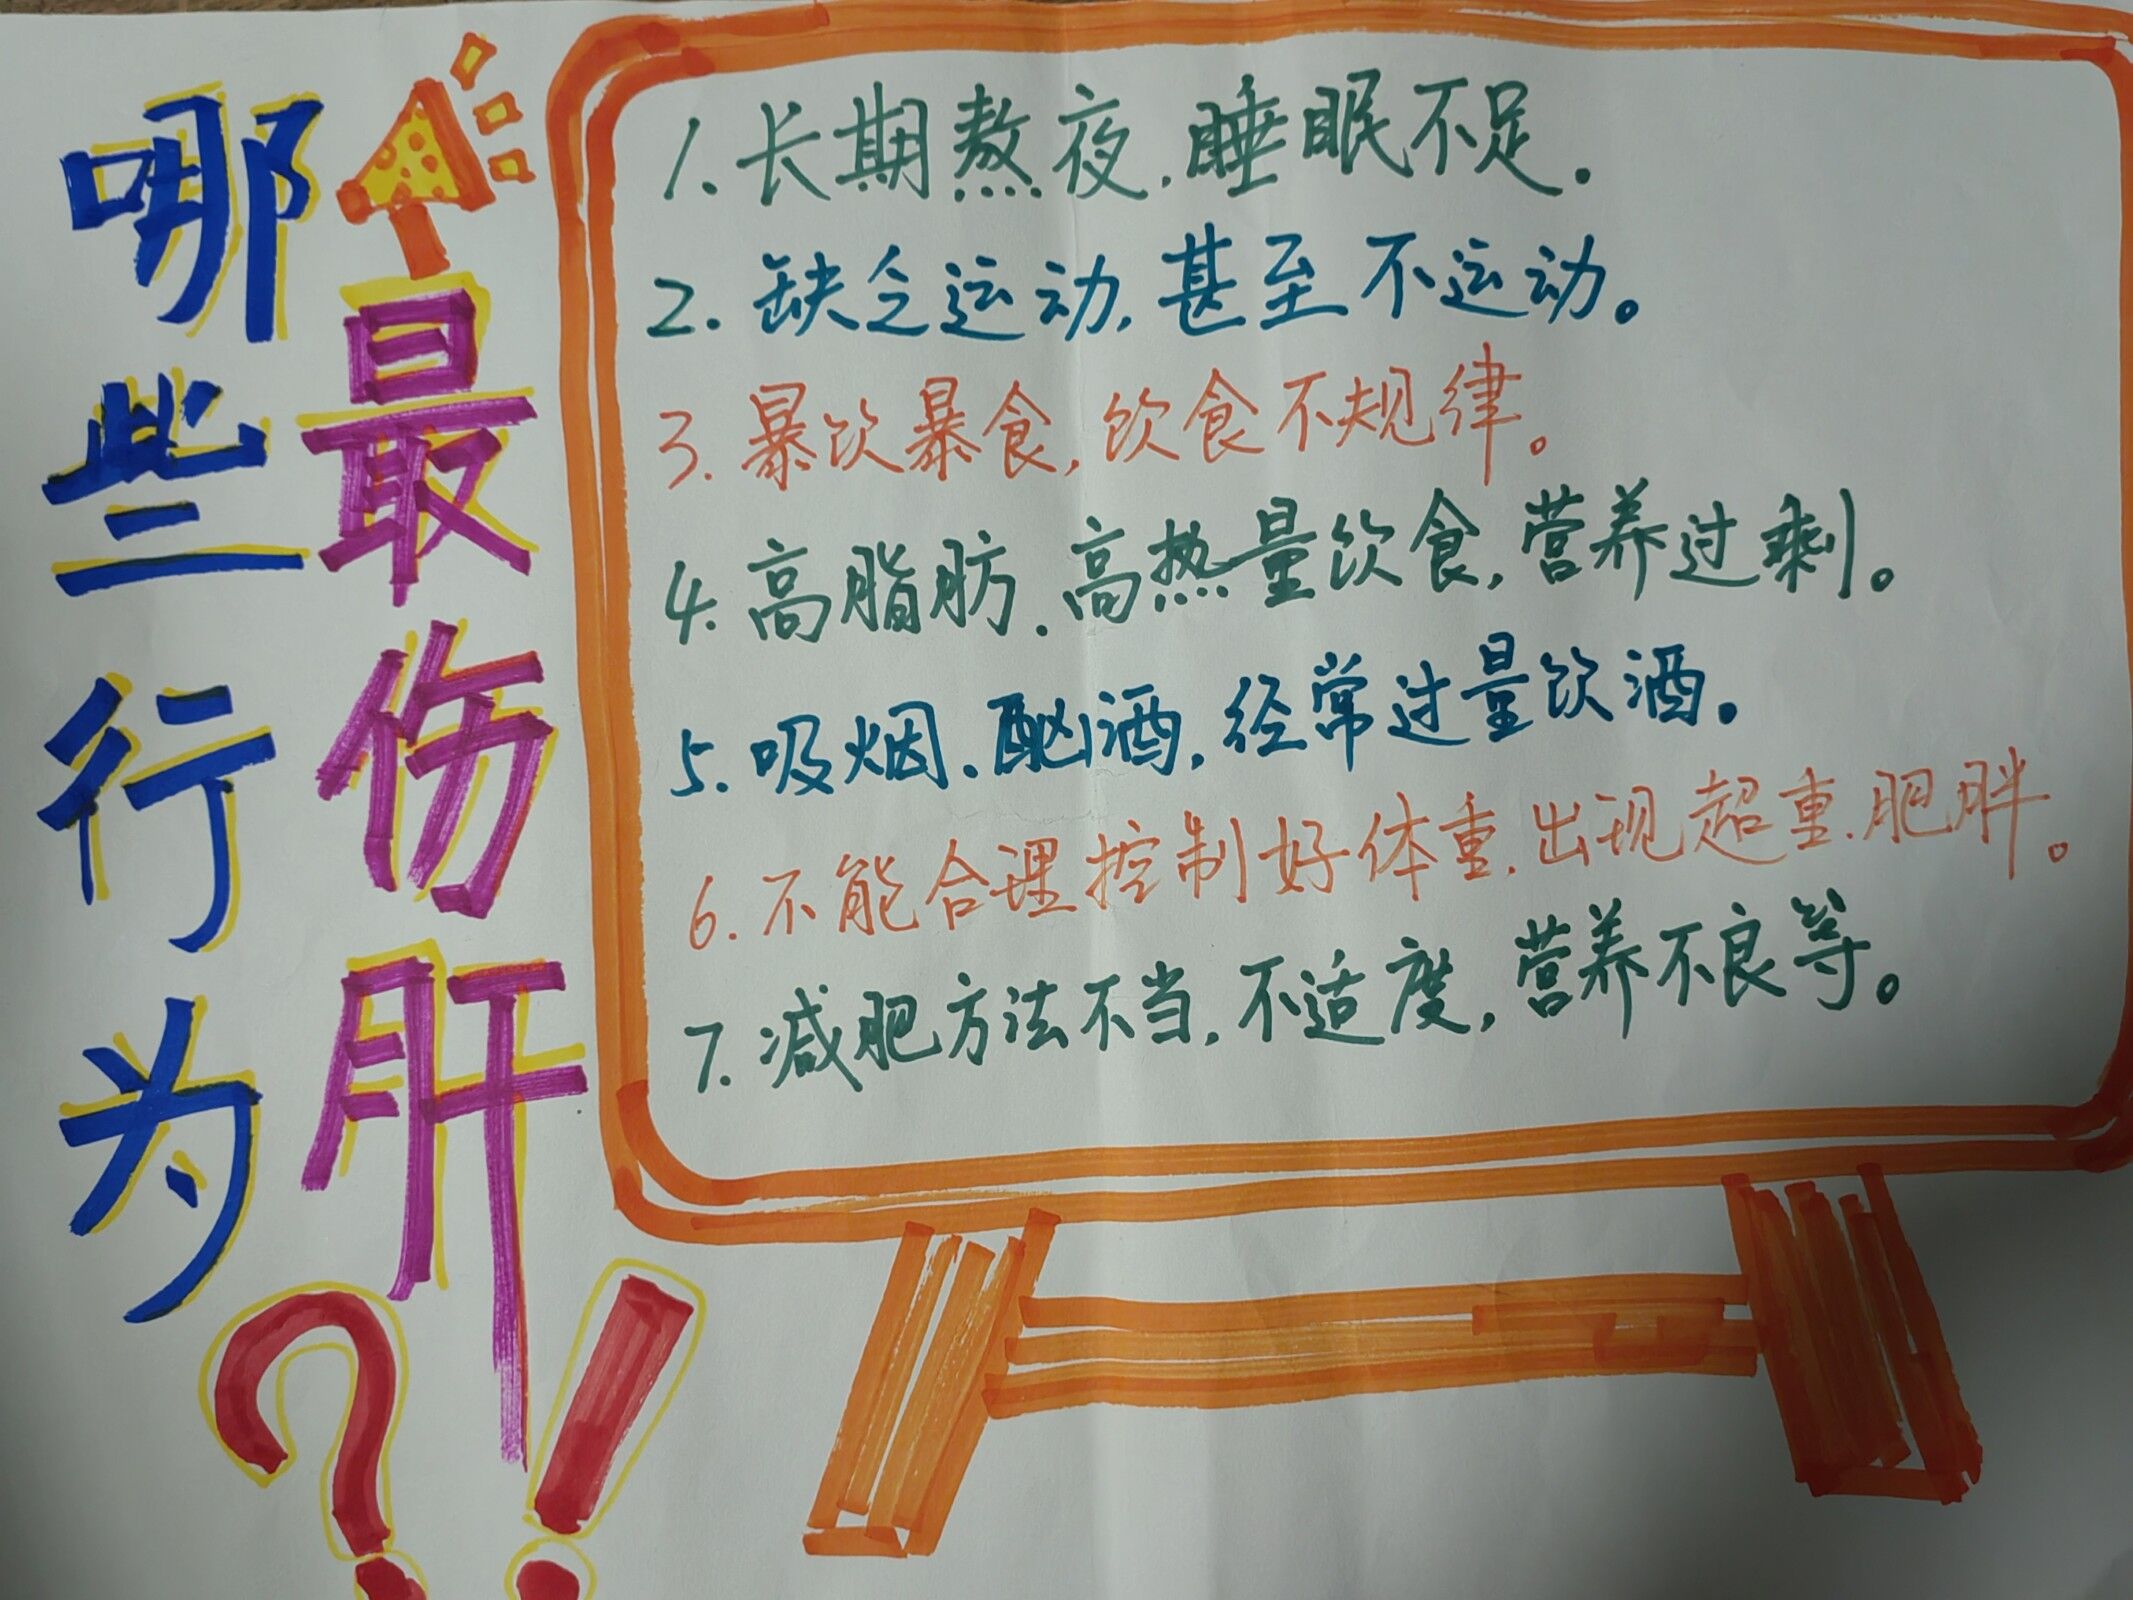 哪些行为
最伤肝
?!
1.长期熬夜.睡眠不足.
2.缺乏运动,甚至不运动。
3.暴饮暴食,饮食不规律。
4.高脂肪.高热量饮食,营养过剩。
5.吸烟.酗酒,经常过量饮酒。
6.不能合理控制好体重.出现超重.肥胖。
7.减肥方法不当,不适度,营养不良等。